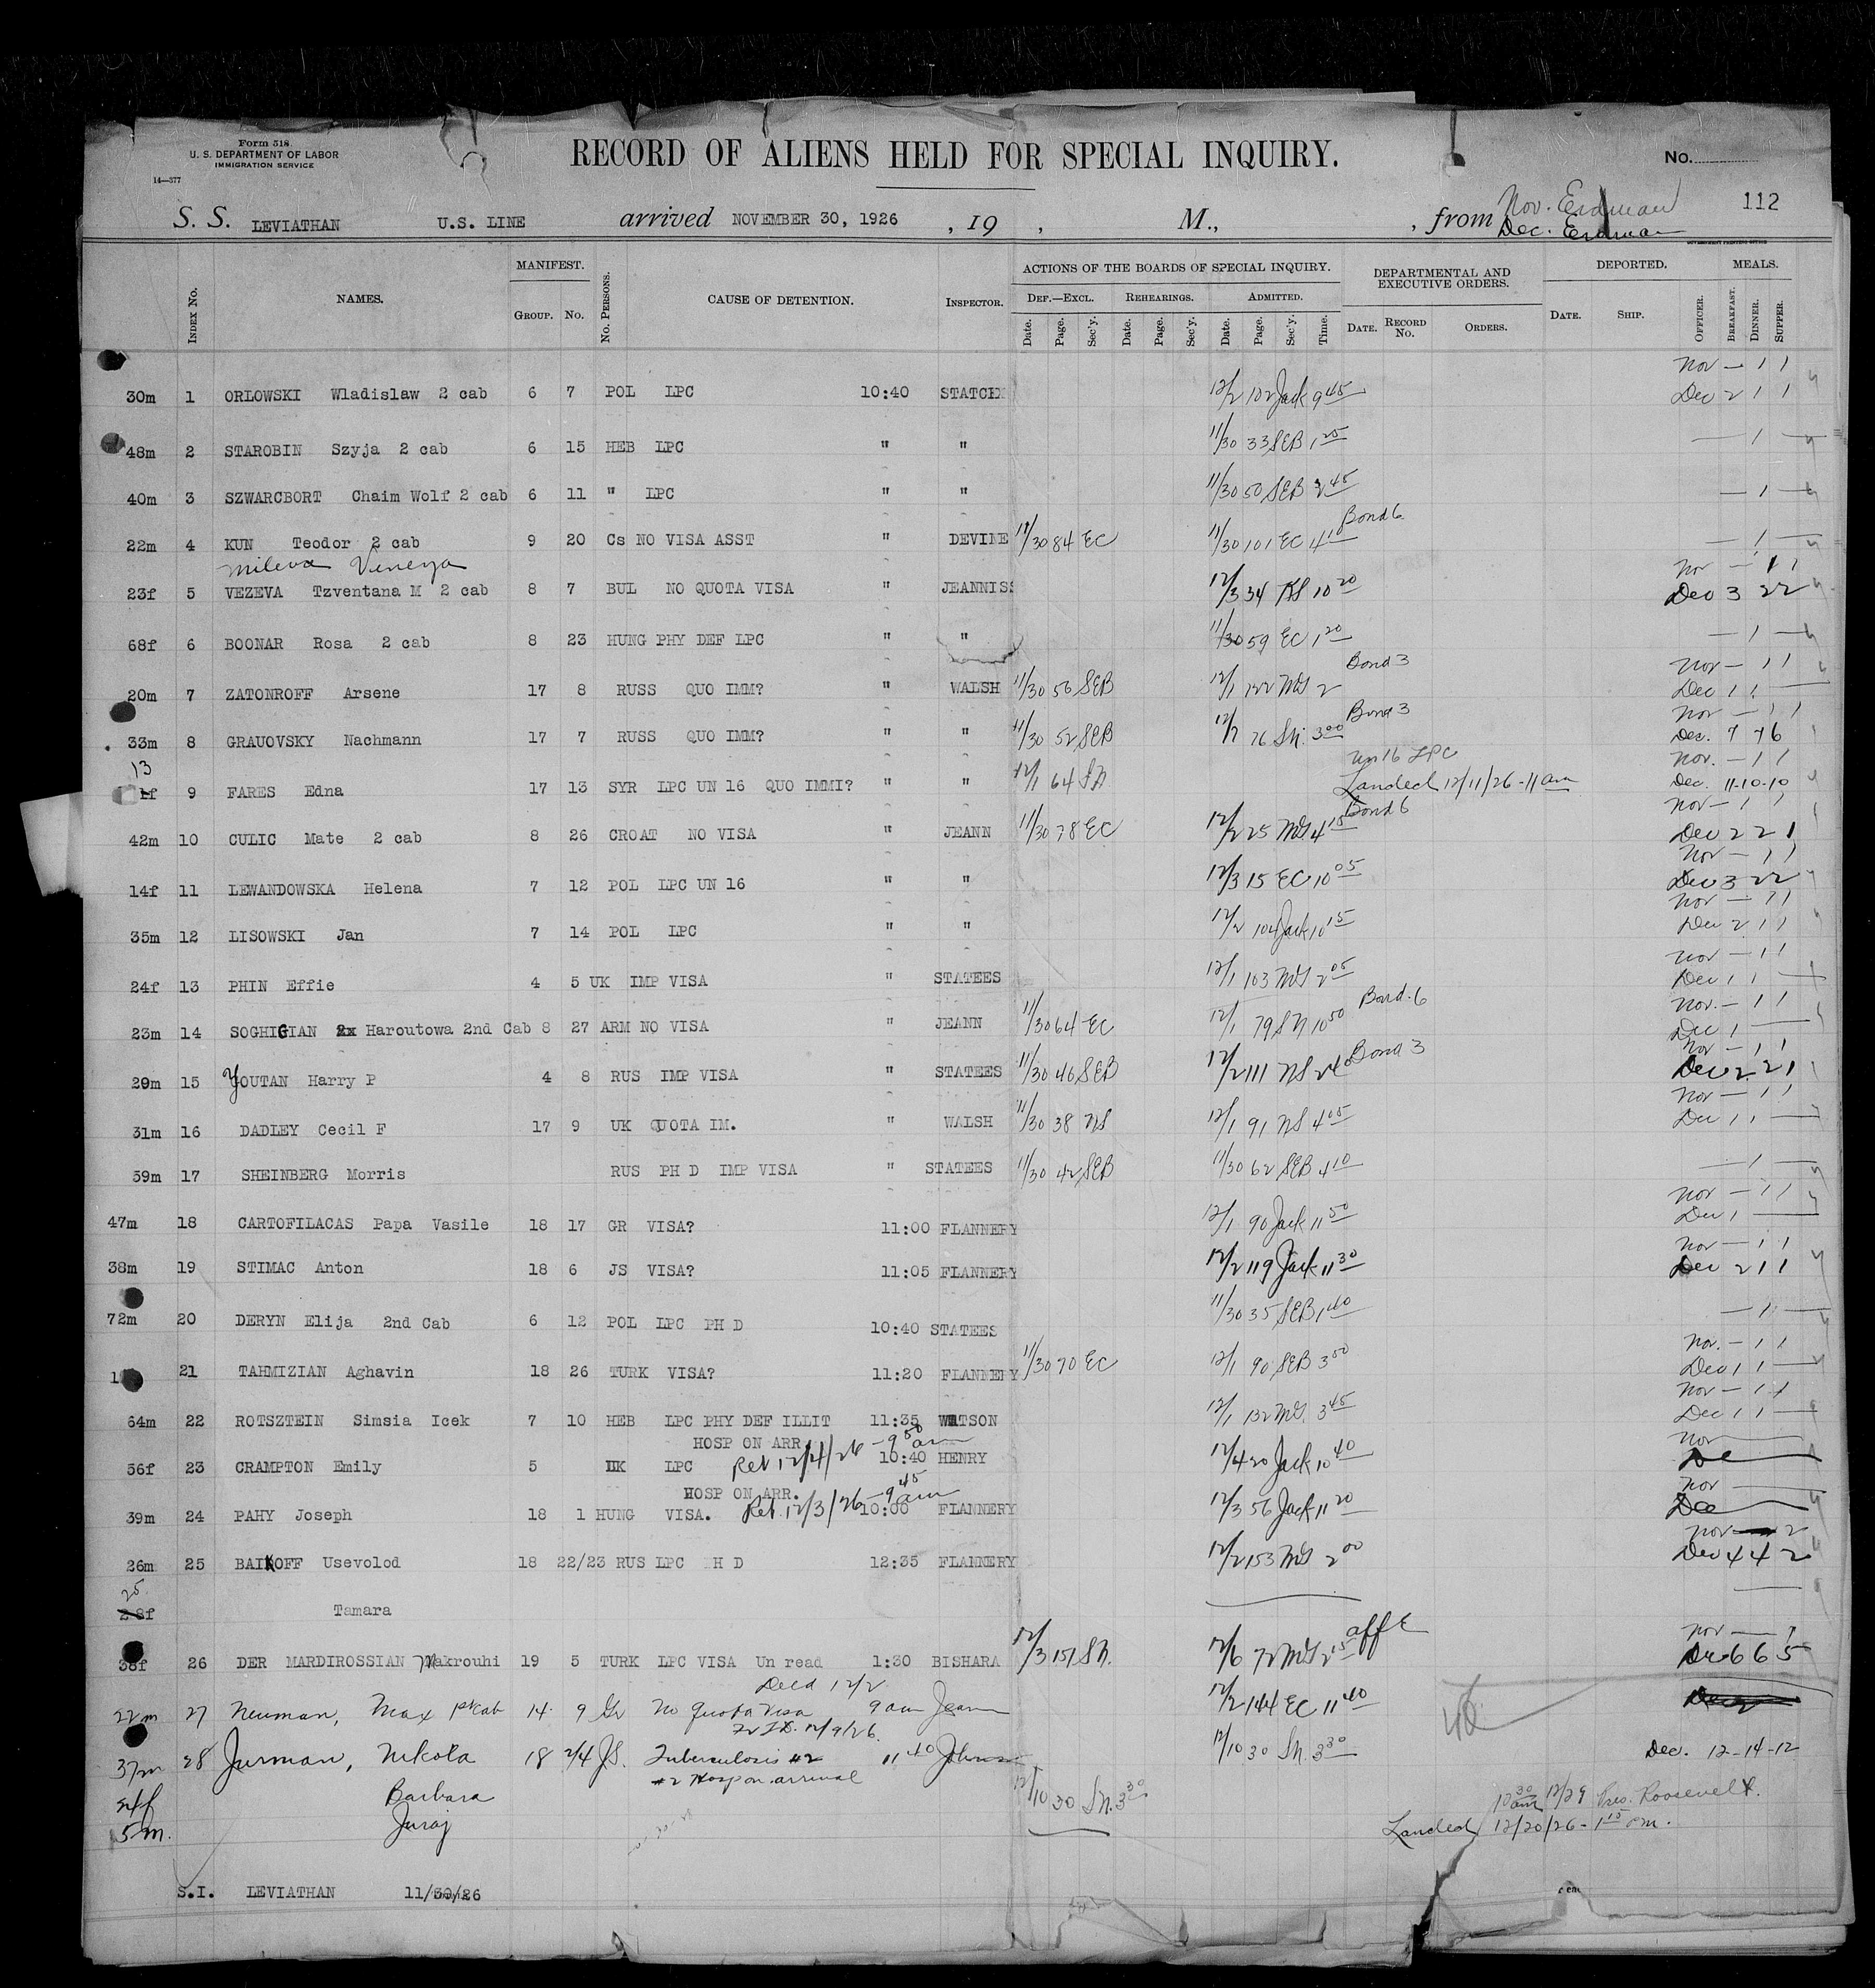 Form 518
U. S. DEPARTMENT OF LABOR
IMMIGRATION SERVICE
14—377
RECORD OF ALIENS HELD FOR SPECIAL INQUIRY.
No.
112
S. S. LEVIATHAN U.S. LINE arrived NOVEMBER 30, 1926 , 19 , M., , from Nov. Erdman
Dec. Erdman
GOVERNMENT PRINTING OFFICE
Index No. NAMES. MANIFEST. Group. No. No. Persons. CAUSE OF DETENTION. Inspector. ACTIONS OF THE BOARDS OF SPECIAL INQUIRY. Def.—Excl. Date. Page. Sec'y. Rehearings. Date. Page. Sec'y. Admitted. Date. Page. Sec'y. Time. DEPARTMENTAL AND EXECUTIVE ORDERS. Date. Record No. Orders. DEPORTED. Date. Ship. MEALS. Officer. Breakfast. Dinner. Supper.
Nov — 1 1
30m 1 ORLOWSKI Wladislaw 2 cab 6 7 POL LPC 10:40 STATCE 12/2 102 Jack 9 45 Dec 2 1 1
48m 2 STAROBIN Szyja 2 cab 6 15 HEB LPC " " 11/30 33 SEB 1 25 — 1 —
40m 3 SZWARCBORT Chaim Wolf 2 cab 6 11 " LPC " " 11/30 50 SEB 2 45 — 1 —
Bond 6
22m 4 KUN Teodor 2 cab 9 20 Cs NO VISA ASST " DEVINE 11/30 84 EC 11/30 101 EC 4 10 — 1 —
Mileva Nov — 1 1
23f 5 VEZEVA Tzventana M 2 cab 8 7 BUL NO QUOTA VISA " JEANNISS 12/3 34 10 20 Dec 3 2 2
68f 6 BOONAR Rosa 2 cab 8 23 HUNG PHY DEF LPC " " 11/30 59 EC 1 20 — 1 —
Bond 3 Nov — 1 1
20m 7 ZATONROFF Arsene 17 8 RUSS QUO IMM? " WALSH 11/30 56 SEB 12/1 122 McG 2 Dec 1 1 —
Bond 3 Nov — 1 1
33m 8 GRAUOVSKY Nachmann 17 7 RUSS QUO IMM? " " 11/30 52 SEB 12/7 76 SN. 3 00 Dec. 7 7 6
13 Un 16 LPC Nov. — 1 1
9 FARES Edna 17 13 SYR LPC UN 16 QUO IMMI? " " 12/1 64 SN Landed 12/11/26 - 11 am Dec. 11-10-10
Bond 6 Nov — 1 1
42m 10 CULIC Mate 2 cab 8 26 CROAT NO VISA " JEANN 11/30 78 EC 12/2 25 McG 4 15 Dec 2 2 1
Nov — 1 1
14f 11 LEWANDOWSKA Helena 7 12 POL LPC UN 16 " " 12/3 15 EC 10 05 Dec 3 2 2
Nov — 1 1
35m 12 LISOWSKI Jan 7 14 POL LPC " " 12/2 104 Jack 10 15 Dec 2 1 1
Nov — 1 1
24f 13 PHIN Effie 4 5 UK IMP VISA " STATEES 12/1 103 McG 2 05 Dec 1 1 —
Bond. 6 Nov. — 1 1
23m 14 SOGHIGIAN Haroutowa 2nd Cab 8 27 ARM NO VISA " JEANN 11/30 64 EC 12/1 79 SN 10 50 Dec 1 —
Bond 3 Nov — 1 1
29m 15 YOUTAN Harry P 4 8 RUS IMP VISA " STATEES 11/30 46 SEB 12/2 111 NS 2 40 Dec 2 2 1
Nov — 1 1
31m 16 DADLEY Cecil F 17 9 UK QUOTA IM. " WALSH 11/30 38 NS 12/1 91 NS 4 05 Dec 1 1 —
59m 17 SHEINBERG Morris RUS PH D IMP VISA " STATEES 11/30 42 SEB 11/30 62 SEB 4 10 — 1 —
Nov — 1 1
47m 18 CARTOFILACAS Papa Vasile 18 17 GR VISA? 11:00 FLANNERY 12/1 90 Jack 11 50 Dec 1 —
Nov — 1 1
38m 19 STIMAC Anton 18 6 JS VISA? 11:05 FLANNERY 12/2 119 Jack 11 30 Dec 2 1 1
72m 20 DERYN Elija 2nd Cab 6 12 POL LPC PH D 10:40 STATEES 11/30 35 SEB 1 40 — 1 —
Nov. — 1 1
21 TAHMIZIAN Aghavin 18 26 TURK VISA? 11:20 FLANNERY 11/30 70 EC 12/1 90 SEB 3 00 Dec 1 1 —
Nov — 1 1
64m 22 ROTSZTEIN Simsia Icek 7 10 HEB LPC PHY DEF ILLIT 11:35 WATSON 12/1 132 McG. 3 45 Dec 1 1 —
HOSP ON ARR Ret 12/4/26 - 9 50 am Nov —
56f 23 CRAMPTON Emily 5 UK LPC 10:40 HENRY 12/4 20 Jack 10 40 De
HOSP ON ARR. Ret. 12/3/26 - 9 45 am Nov —
39m 24 PAHY Joseph 18 1 HUNG VISA. 10:00 FLANNERY 12/3 56 Jack 11 20 Dec
Nov — 2
26m 25 BAIKOFF Usevolod 18 22/23 RUS LPC PH D 12:35 FLANNERY 12/2 153 McG 2 00 Dec 4 4 2
25
28f Tamara
Nov — 1
38f 26 DER MARDIROSSIAN Makrouhi 19 5 TURK LPC VISA Un read 1:30 BISHARA 12/3 151 SN. 12/6 72 McG 2 15 Dec 6 6 5
Decd 12/2
22m 27 Neuman, Max 1st cab 14 9 Gr No Quota Visa 9 am Jeann 12/2 144 EC 11 40
12/9/26
37m 28 Jurman, Nikola 18 2/4 JS. Tuberculosis #2 11 40 Johnson 12/10 30 SN. 3 30 Dec. 12-14-12
#2 Hosp on arrival
24f Barbara 12/10 30 SN. 3 30 10 30 am 12/29 Pres. Roosevelt.
5m. Juraj Landed 12/20/26 - 1 15 pm.
S.I. LEVIATHAN 11/30/26